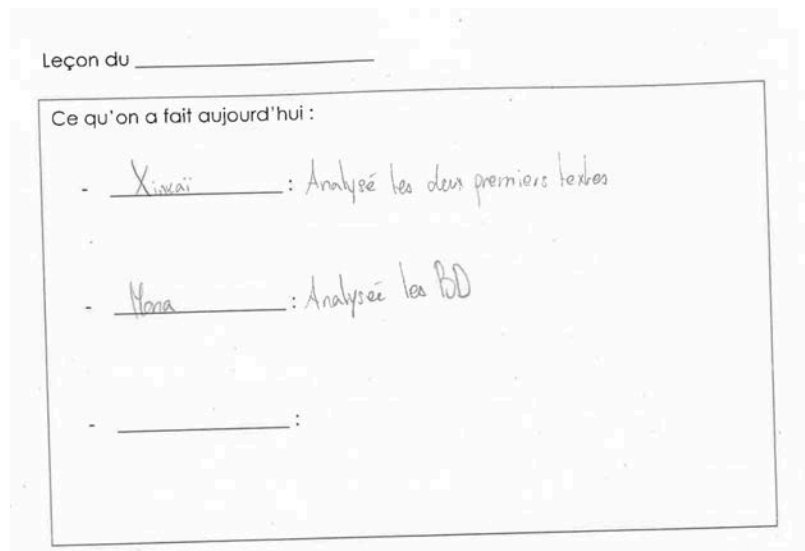 Leçon du
Ce qu'on a fait aujourd'hui :
- Xinkaï : Analysé les deux premiers textes
- Mona : Analyseé les BD
- :